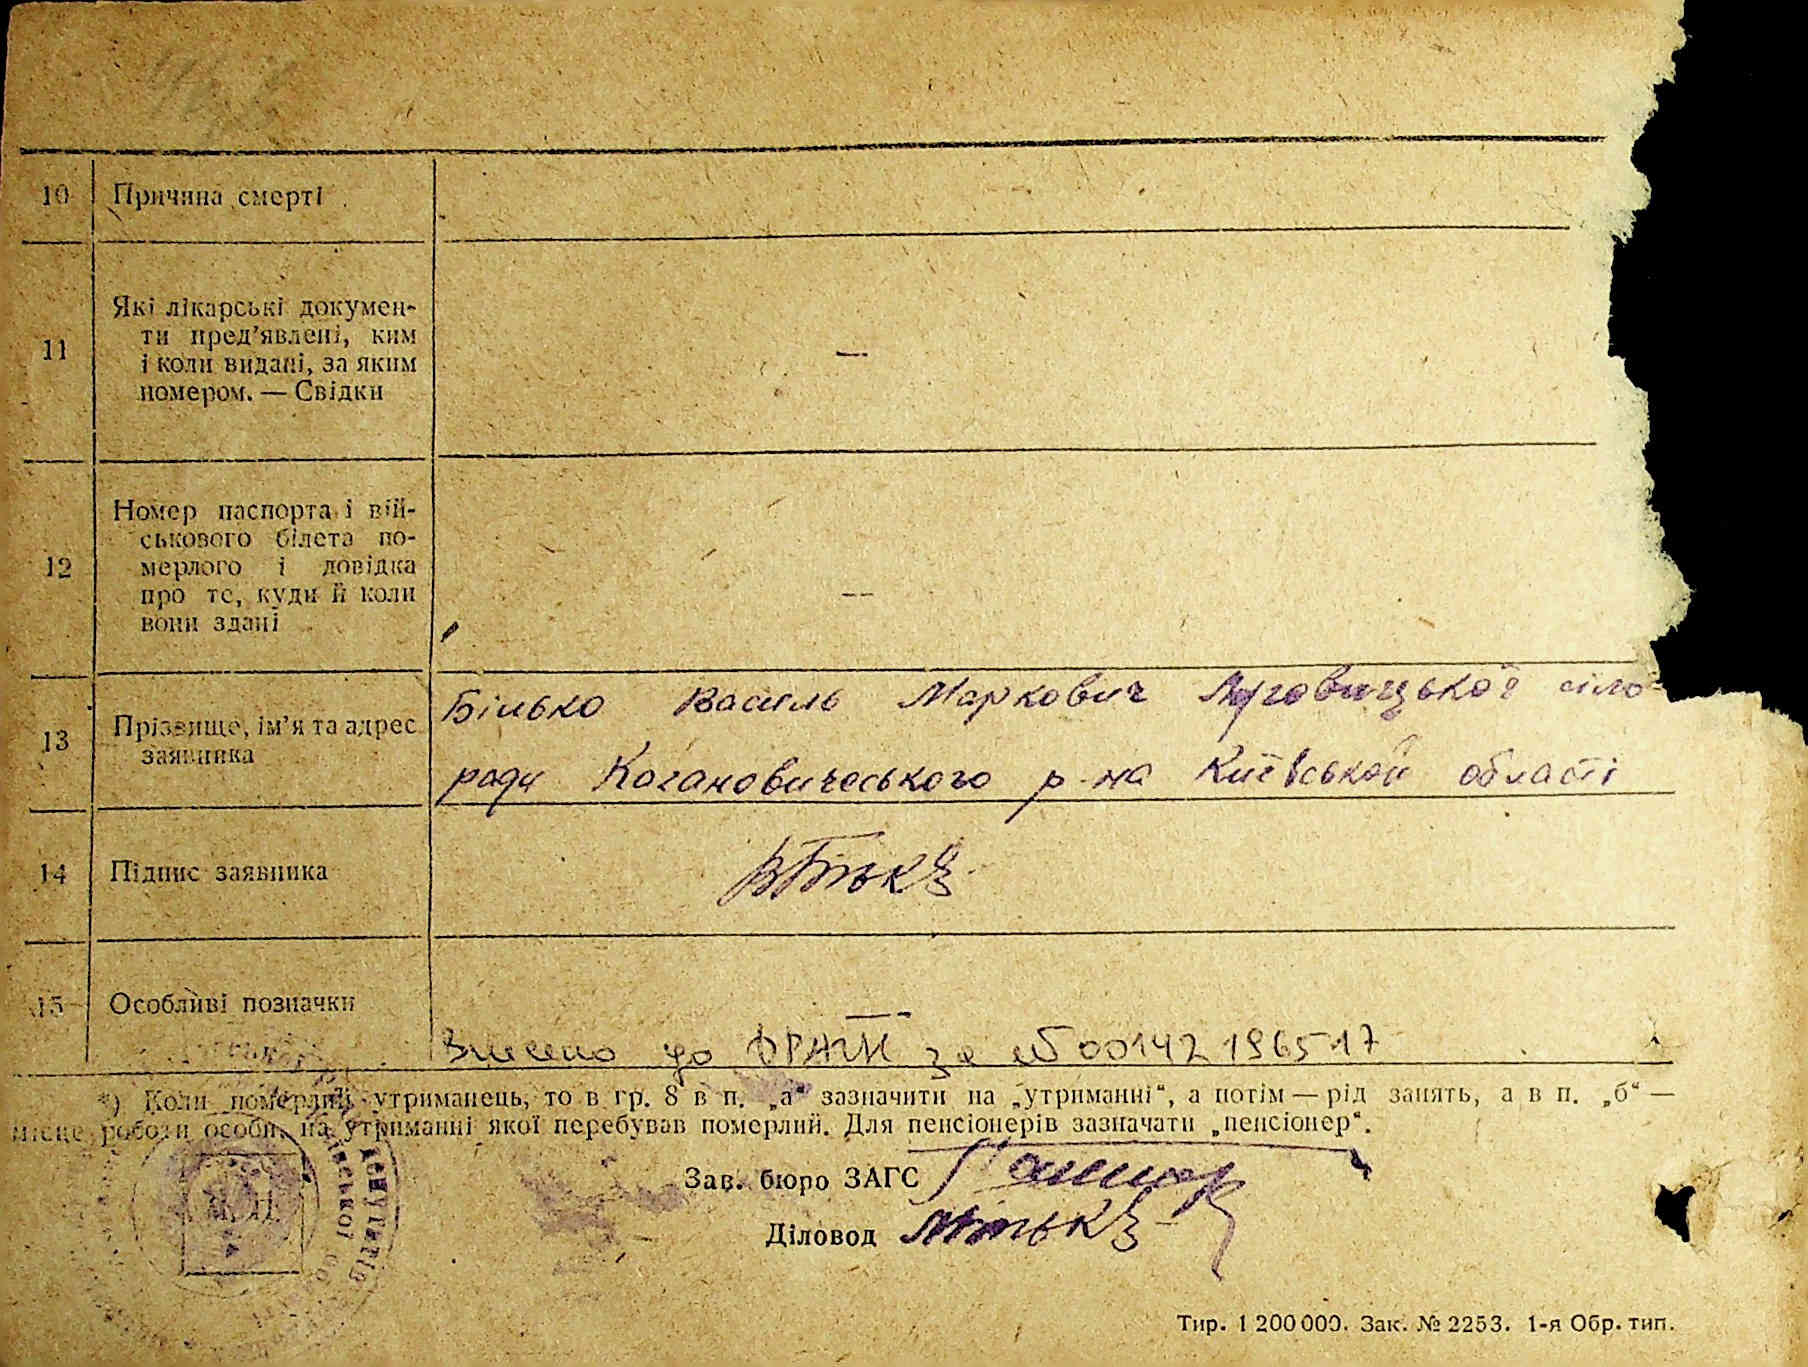 10 Причина смерті
11 Які лікарські докумен-
ти пред’явлені, ким
і коли видані, за яким
номером. — Свідки
—
12 Номер паспорта і вій-
ськового білета по-
мерлого і довідка
про те, куди й коли
вони здані
—
13 Прізвище, ім’я та адрес
заявника
Білько Василь Маркович Луговицької сіло
ради Кагановичеського р-на Київської області
14 Підпис заявника
15 Особливі позначки
—
Внесено до ДРАЦС за №00142196517
*) Коли померлий утриманець, то в гр. 8 в п. „а“ зазначити на „утриманні“, а потім — рід занять, а в п. „б“ —
місце роботи особи, на утриманні якої перебував померлий. Для пенсіонерів зазначати „пенсіонер“.
Зав. бюро ЗАГС
Діловод
депутатів
Тир. 1 200 000. Зак. № 2253. 1-я Обр. тип.